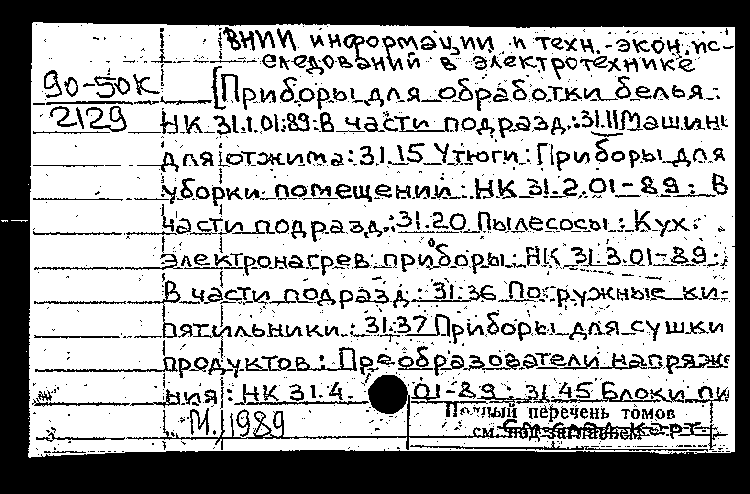 ВНИИ информации и техн.-экон. ис-
следований в электротехнике
90-50К
[Приборы для обработки белья:
2129
НК 31.1.01-89: В части подразд.: 31.11 Машины
для отжима: 31.15 Утюги: Приборы для
уборки помещений: НК 31.2.01-89: В
части подразд.: 31.20 Пылесосы: Кух.
электронагрев. приборы: НК 31.3.01-89:
В части подразд.: 31.36 Погружные ки-
пятильники: 31.37 Приборы для сушки
продуктов: Преобразователи напряже
ния: НК 31.4. 01-89: 31.45 Блоки пи
М., 1989
Полный перечень томов
см. под заглавием